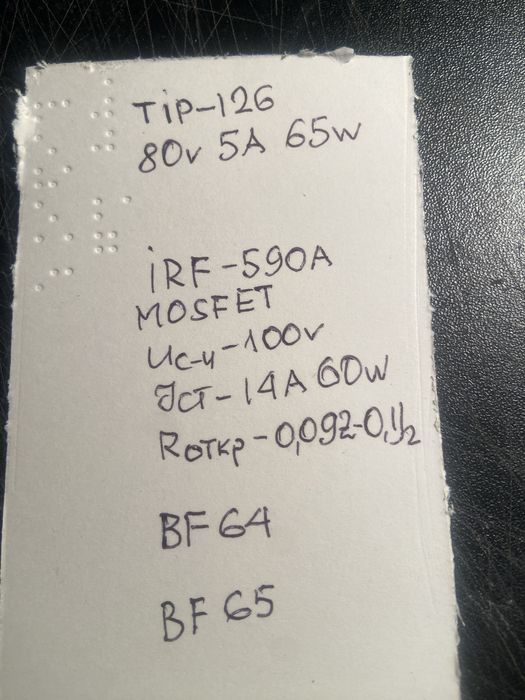 TiP-126
80v 5A 65w
iRF-590A
MOSFET
Uс-и-100v
Jст-14A 60w
Rоткр-0,092-0,1/2
BF 64
BF 65